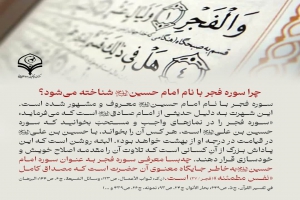 وَالْفَجْرِ
قسم به صبحگاه
هَلْ فِي ذَٰلِكَ
چرا سوره فجر با نام امام حسین شناخته می‌شود؟
سوره فجر با نام امام حسین معروف و مشهور شده است.
این شهرت به دلیل حدیثی از امام صادق است که می‌فرماید:
«سوره فجر را در نمازهای واجب و مستحب بخوانید که سوره
حسین بن علی است، هر کس آن را بخواند، با حسین بن علی
در قیامت در درجه او از بهشت خواهد بود». البته روشن است که این
پاداش بزرگ از آن کسانی است که تلاوت آن را مقدمه اصلاح خویش و
خودسازی قرار دهند. چه‌بسا معرفی سوره فجر به عنوان سوره امام
حسین به خاطر جایگاه معنوی آن حضرت است که مصداق کامل
«نفس مطمئنه» است.